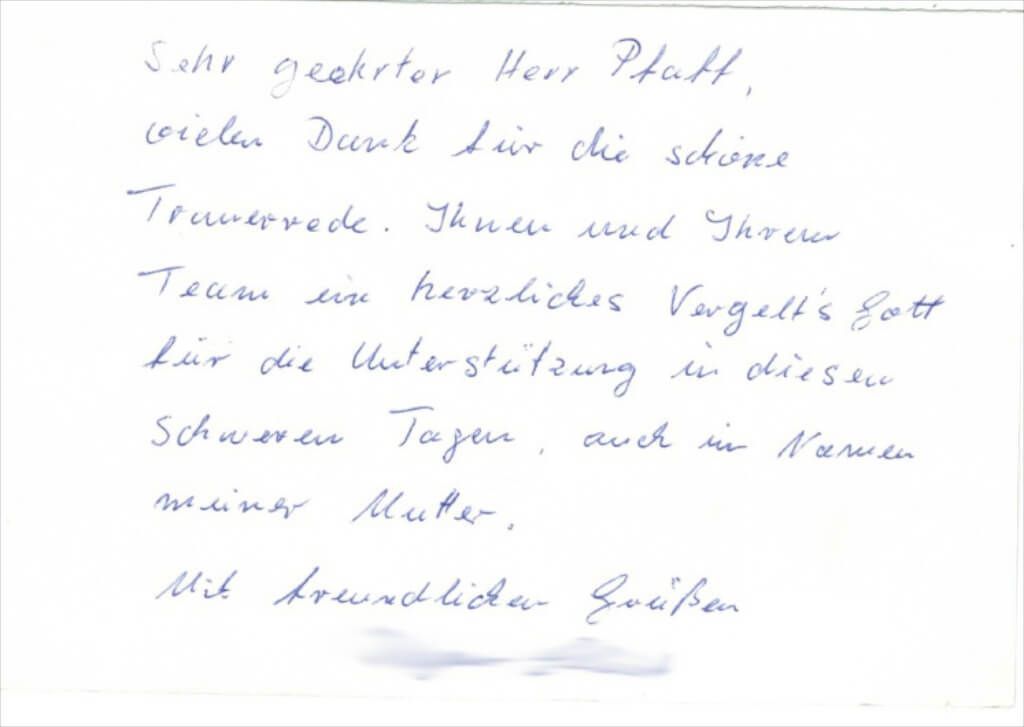 Sehr geehrter Herr Pfaff,
vielen Dank für die schöne
Trauerrede. Ihnen und Ihrem
Team ein herzliches Vergelt's Gott
für die Unterstützung in diesen
schweren Tagen, auch im Namen
meiner Mutter.
Mit freundlichen Grüßen